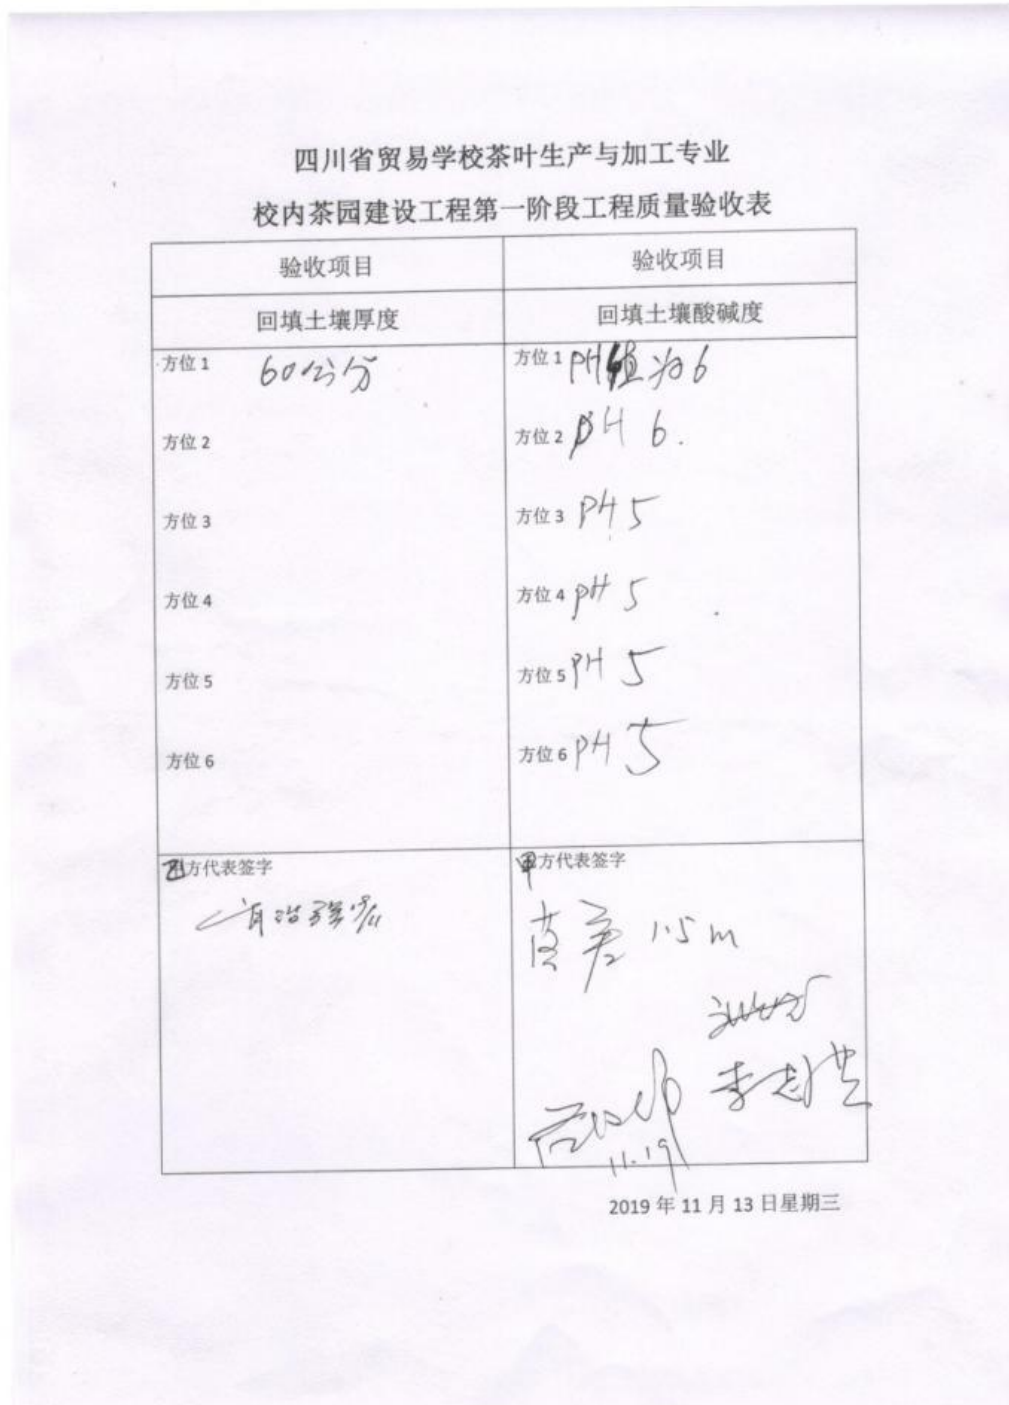 四川省贸易学校茶叶生产与加工专业
校内茶园建设工程第一阶段工程质量验收表
验收项目 验收项目
回填土壤厚度 回填土壤酸碱度
方位1 60公分 方位1 PH值为6
方位2 方位2 PH 6.
方位3 方位3 PH 5
方位4 方位4 PH 5
方位5 方位5 PH 5
方位6 方位6 PH 5
乙方代表签字 甲方代表签字
1.5m
李志洪
11.19
2019年11月13日星期三